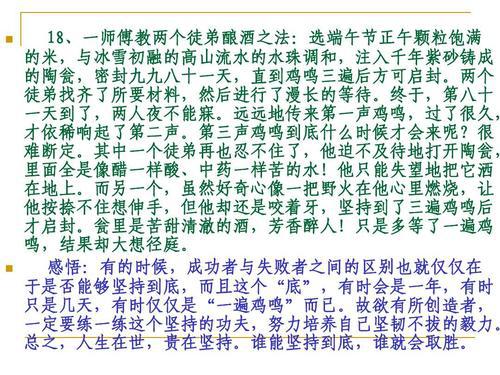 18、一师傅教两个徒弟酿酒之法：选端午节正午颗粒饱满
的米，与冰雪初融的高山流水的水珠调和，注入千年紫砂铸成
的陶瓮，密封九九八十一天，直到鸡鸣三遍后方可启封。两个
徒弟找齐了所要材料，然后进行了漫长的等待。终于，第八十
一天到了，两人夜不能寐。远远地传来第一声鸡鸣，过了很久，
才依稀响起了第二声。第三声鸡鸣到底什么时候才会来呢？很
难断定。其中一个徒弟再也忍不住了，他迫不及待地打开陶瓮，
里面全是像醋一样酸、中药一样苦的水！他只能失望地把它洒
在地上。而另一个，虽然好奇心像一把野火在他心里燃烧，让
他按捺不住想伸手，但他却还是咬着牙，坚持到了三遍鸡鸣后
才启封。瓮里是苦甜清澈的酒，芳香醉人！只是多等了一遍鸡
鸣，结果却大想径庭。
感悟：有的时候，成功者与失败者之间的区别也就仅仅在
于是否能够坚持到底，而且这个“底”，有时会是一年，有时
只是几天，有时仅仅是“一遍鸡鸣”而已。故欲有所创造者，
一定要练一练这个坚持的功夫，努力培养自己坚韧不拔的毅力。
总之，人生在世，贵在坚持。谁能坚持到底，谁就会取胜。